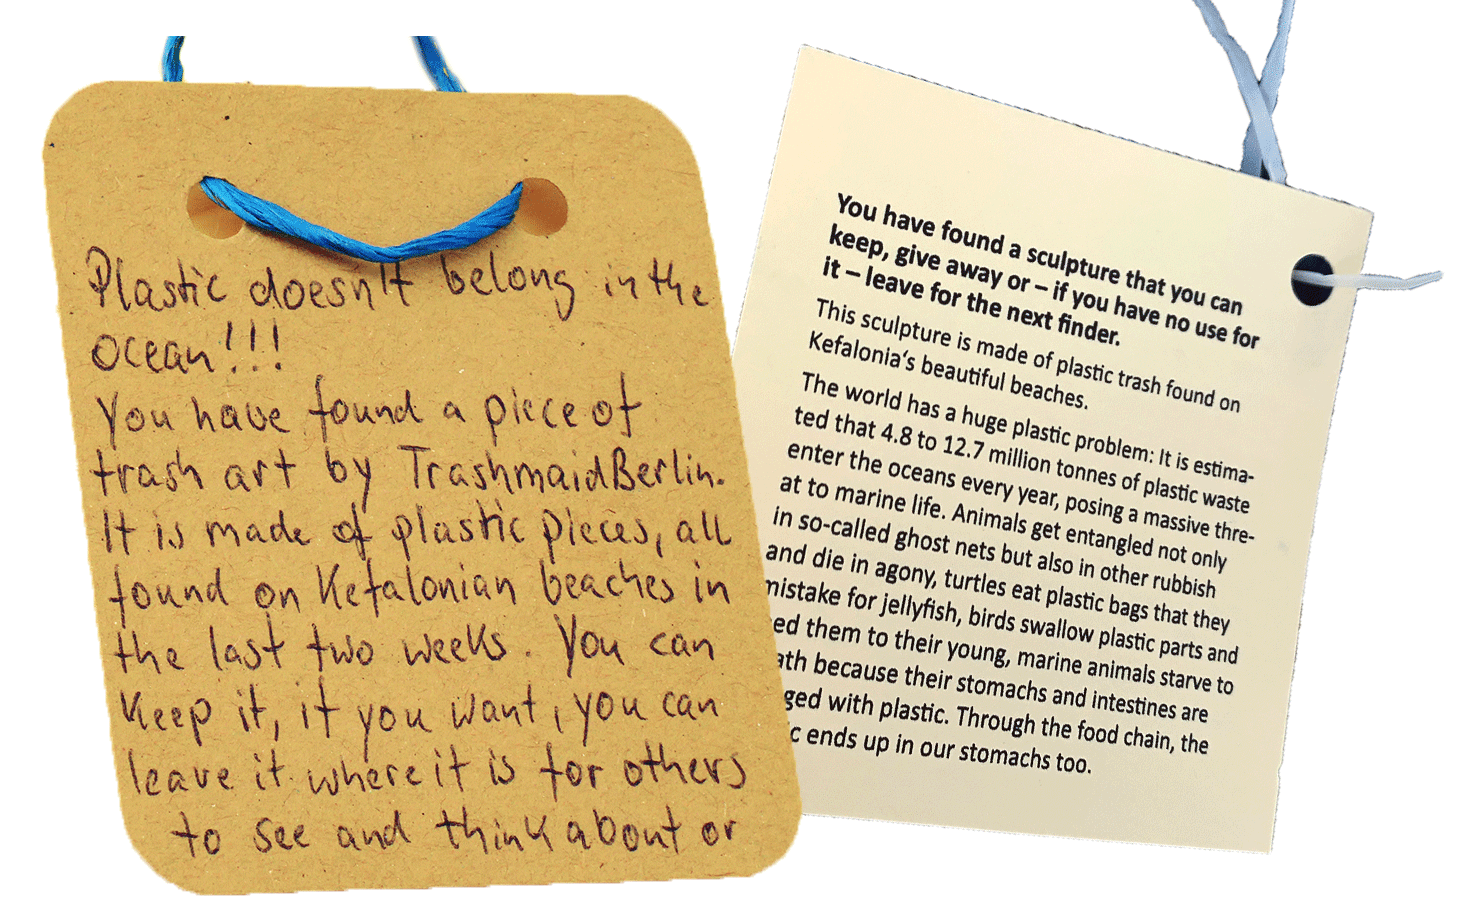 Plastic doesn't belong in the
ocean!!!
You have found a piece of
trash art by TrashmaidBerlin.
It is made of plastic pieces, all
found on Kefalonian beaches in
the last two weeks. You can
keep it, if you want, you can
leave it where it is for others
to see and think about or
You have found a sculpture that you can
keep, give away or – if you have no use for
it – leave for the next finder.
This sculpture is made of plastic trash found on
Kefalonia‘s beautiful beaches.
The world has a huge plastic problem: It is estima-
ted that 4.8 to 12.7 million tonnes of plastic waste
enter the oceans every year, posing a massive thre-
at to marine life. Animals get entangled not only
in so-called ghost nets but also in other rubbish
and die in agony, turtles eat plastic bags that they
mistake for jellyfish, birds swallow plastic parts and
ed them to their young, marine animals starve to
ath because their stomachs and intestines are
ged with plastic. Through the food chain, the
ic ends up in our stomachs too.